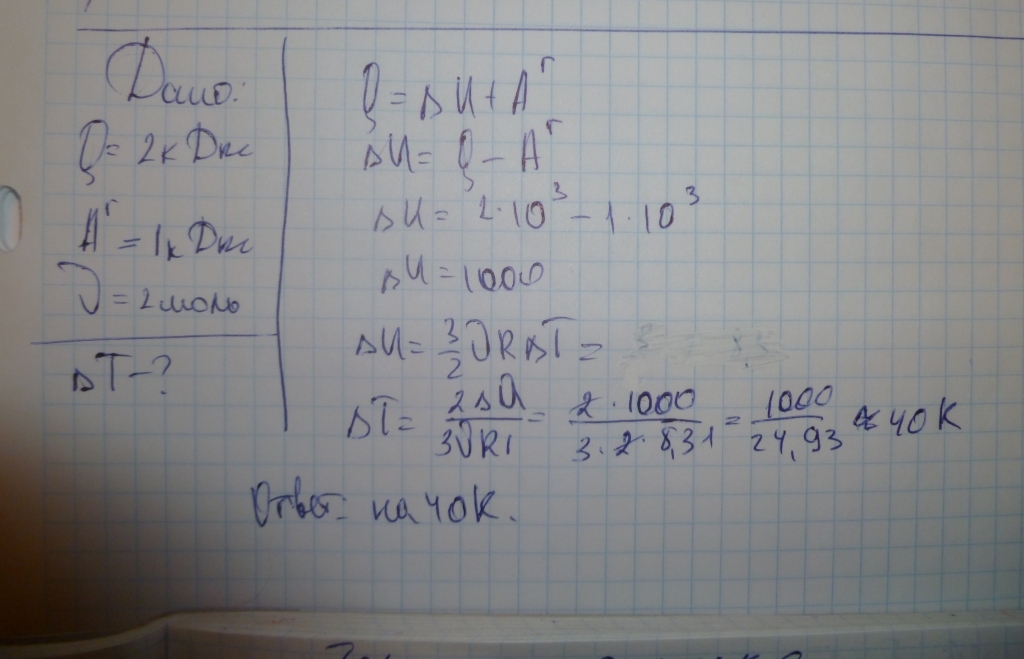 Дано:
Q = 2кДж
Aᴦ = 1кДж
ϑ = 2моль
ΔT - ?
Q = ΔU + Aᴦ
ΔU = Q - Aᴦ
ΔU = 2·10³ - 1·10³
ΔU = 1000
ΔU = 3/2 ϑRΔT =
ΔT = 2ΔU/3ϑR1 = 2·1000/3·2·8,31 = 1000/24,93 ≈ 40K
Ответ: на 40К.